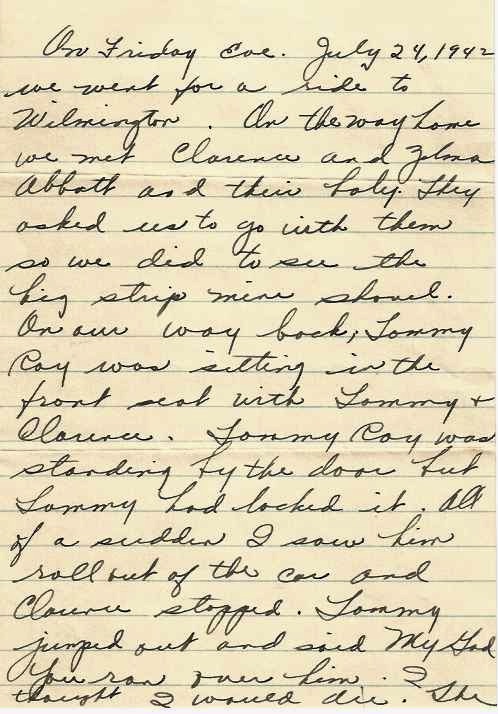 On Friday Eve. July 24, 1942
we went for a ride to
Wilmington. On the way home
we met Clarence and Zelma
Abbott and their baby. They
asked us to go with them
so we did to see the
big strip mine shovel.
On our way back, Tommy
Coy was sitting in the
front seat with Tommy +
Clarence. Tommy Coy was
standing by the door but
Tommy had locked it. All
of a sudden I saw him
roll out of the car and
Clarence stopped. Tommy
jumped out and said My God
you ran over him. I
thought I would die. She